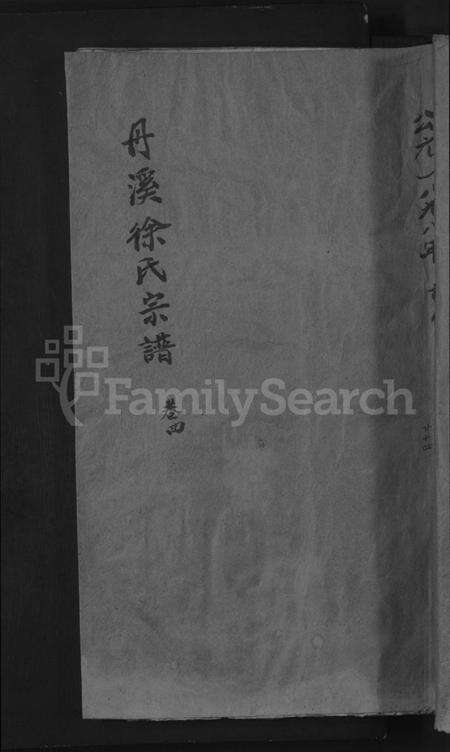 公元一八九八年
丹溪徐氏宗譜
卷四
FamilySearch